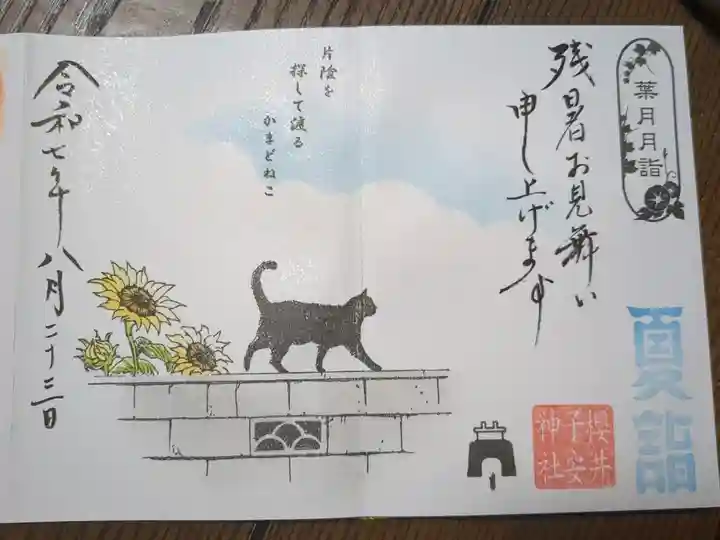 葉月月詣
夏詣
残暑お見舞い
申し上げます
櫻井
子安
神社
片陰を
探して渡る
かまどねこ
令和七年八月二十三日